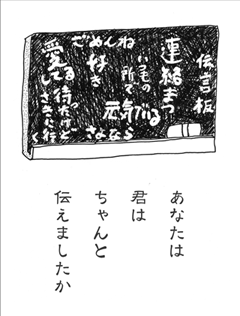 伝言板
連絡まつ
いつもの
所で
ごめんね
好き
元気
さよなら
愛してる
待ったけど
さきに行く
あなたは
君は
ちゃんと
伝えましたか